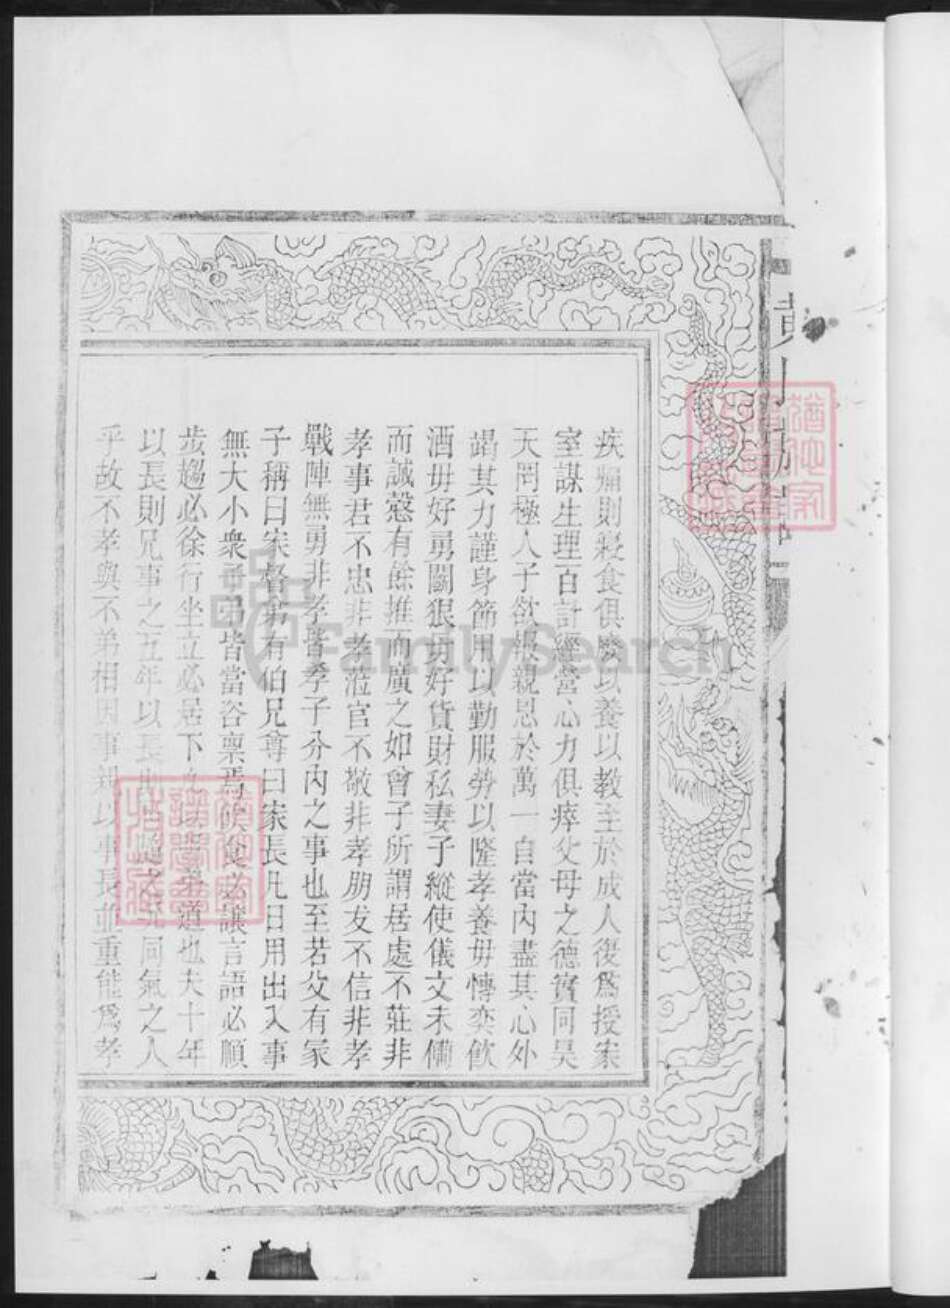 疾痾則寢食俱廢以養以教至於成人復爲授家
室謀生理百計經營心力俱瘁父母之德實同昊
天罔極人子欲報親恩於萬一自當內盡其心外
竭其力謹身節用以勤服勞以隆孝養毋慱奕飲
酒毋好勇鬬狠毋好貨財私妻子縱使儀文未備
而誠慤有餘推而廣之如曾子所謂居處不莊非
孝事君不忠非孝蒞官不敬非孝朋友不信非孝
戰陣無勇非孝皆孝子分內之事也至若父有冢
子稱曰家督弟有伯兄尊曰家長凡日用出入事
無大小衆子弟皆當咨稟焉飲食必讓言語必順
步趨必徐行坐立必居下 道也夫十年
以長則兄事之五年以長 隨之 同氣之人
乎故不孝與不弟相因事親以事長並重能爲孝
黃
FamilySearch